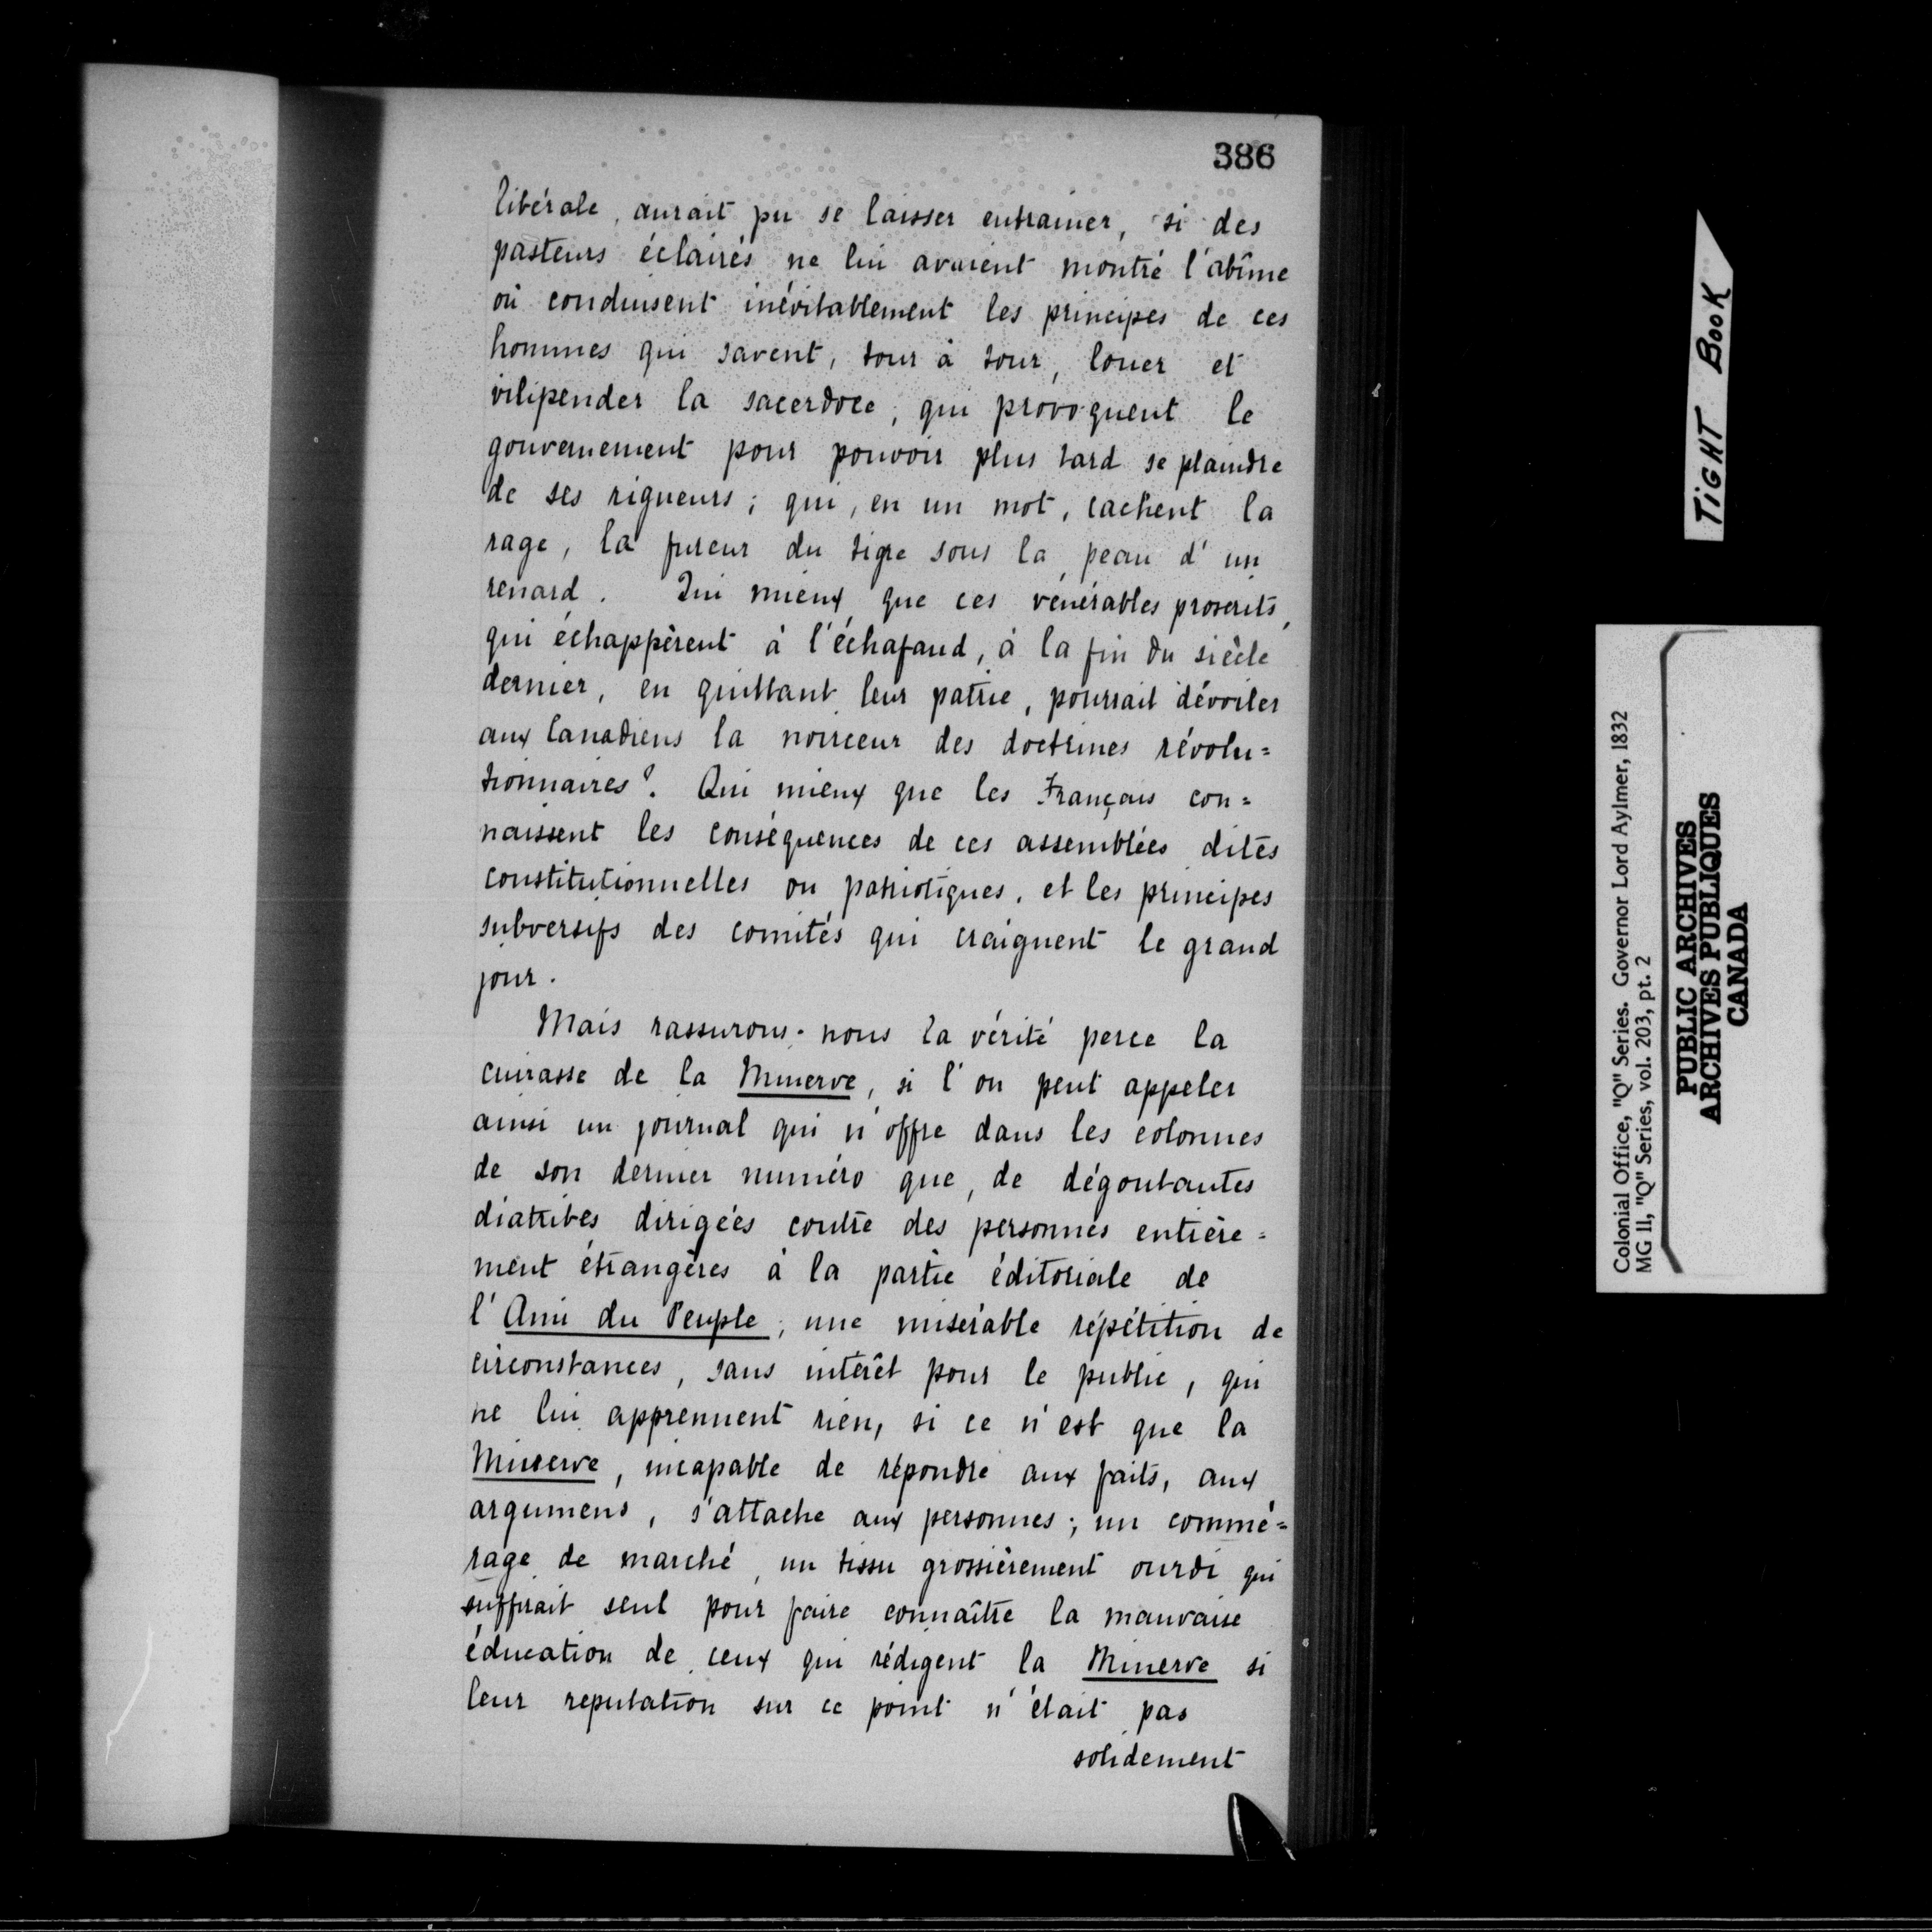 386
libérale, aurait pu se laisser entrainer, si des
pasteurs éclairés ne lui avaient montré l'abîme
où conduisent inévitablement les principes de ces
hommes qui savent, tour à tour, louer et
vilipender la sacerdoce, qui provoquent le
gouvernement pour pouvoir plus tard se plaindre
de ses rigueurs; qui, en un mot, cachent la
rage, la fureur du tigre sous la peau d'un
renard. Qui mieux que ces vénérables proscrits,
qui échappèrent à l'échafaud, à la fin du siècle
dernier, en quittant leur patrie, pourrait dévoiler
aux Canadiens la noirceur des doctrines révolu=
tionnaires? Qui mieux que les Français con=
naissent les conséquences de ces assemblées dites
constitutionnelles ou patriotiques, et les principes
subversifs des comités qui craignent le grand
jour.
Mais rassurons-nous la vérité perce la
cuirasse de la Minerve, si l'on peut appeler
ainsi un journal qui n'offre dans les colonnes
de son dernier numéro que, de dégoutantes
diatribes dirigées contre des personnes entière=
ment étrangères à la partie éditoriale de
l'Ami du Peuple; une misérable répétition de
circonstances, sans intérêt pour le public, qui
ne lui apprennent rien, si ce n'est que la
Minerve, incapable de répondre aux faits, aux
argumens, s'attache aux personnes; un commé=
rage de marché, un tissu grossièrement ourdi qui
suffirait seul pour faire connaître la mauvaise
éducation de ceux qui rédigent la Minerve si
leur reputation sur ce point n'était pas
solidement
TIGHT BOOK
Colonial Office, "Q" Series. Governor Lord Aylmer, 1832
MG 11, "Q" Series, vol. 203, pt. 2
PUBLIC ARCHIVES
ARCHIVES PUBLIQUES
CANADA